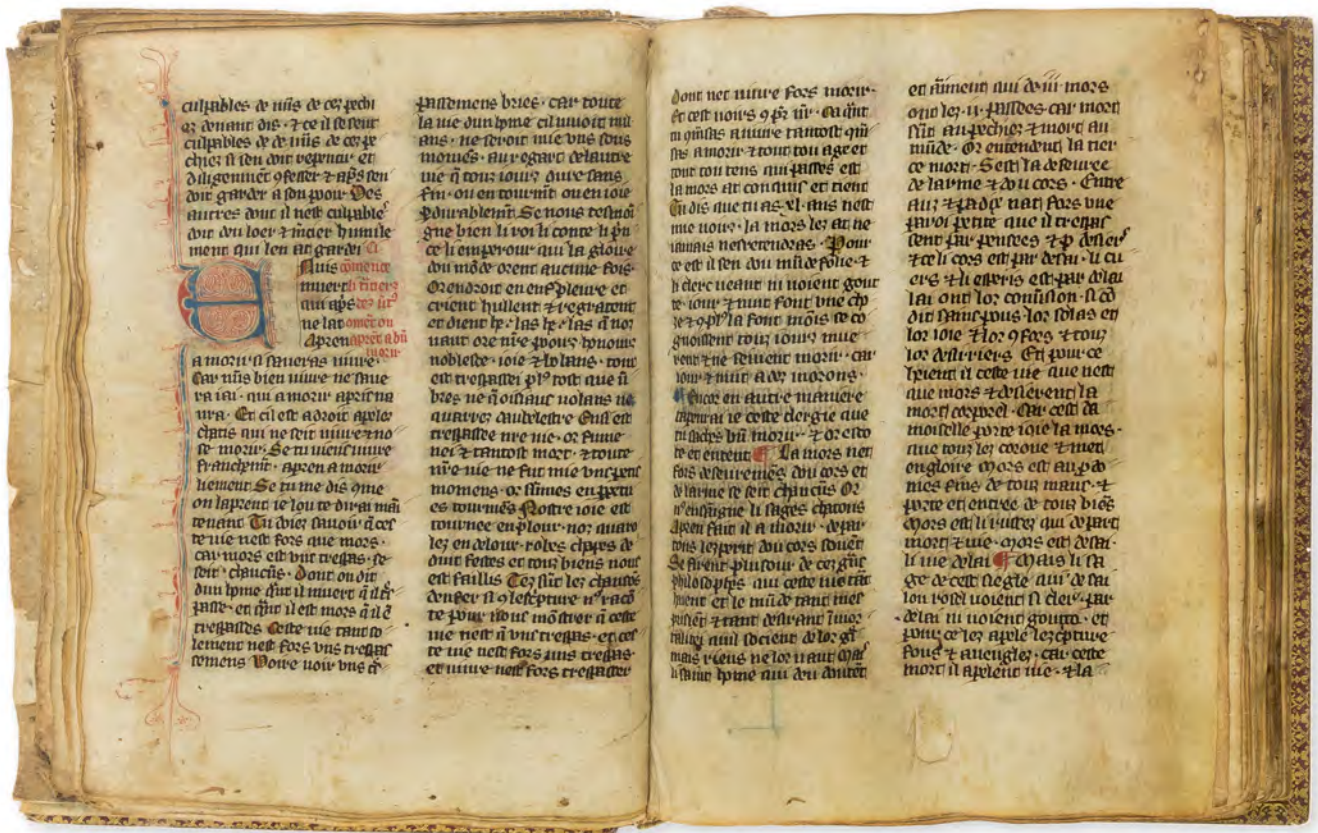 culpables de nus de cez pechi
ez deuant dis · ⁊ ce il se sent
culpables de de nus de cez pe
chiez si sen doit repentir et
diligenment ꝯfesser ⁊ aps̄ sen
doit garder a son pooir Des
autres dont il nest culpable
doit dou loer ⁊ m̄cier humile
ment qui len at gardei Ci
Nuis comence
muert li tier
qui aps
ne lat
Apren apret a bn̄
morir
a morir si saueras uiure ·
Car nus bien uiure ne saue
ra iai · qui a morir apris na
ura · Et cil est a droit apelez
chatis qui ne seit uiure ⁊ no
se morir · Se tu uieus uiure
franchemt̄ · apren a morir
liement Se tu me dis ꝯme
on laprent ie lou te dirai mai
tenant Tu doiez sauoir q̄ ces
te uie nest fors que mors ·
car mors est vns trespas · se
seit · chascuns · Dont on dit
dun home qn̄t il muert q̄ il tres
passe · et qn̄t il est mors q̄ il ē
trespasses Ceste uie tant so
lement nest fors vns trespas
semens Voire uoir vns tres
passemens bries · car toute
la uie dun home cil uiuoit mil
ans · ne seroit mie vns sous
momens · au regart de lautre
uie q̄ tous iours dure sans
fin · ou en tourmt̄ ou en ioie
ꝑdurablemt̄ Se nous tesmoi
gne bien li roi li conte li prin
ce li emperour qui la gloire
dou mōde orent aucune fois ·
Orendroit en enfer pleure et
crient hullent ⁊ regratent
et dient he · las he · las q̄ nos
uaut ore nr̄e pooirs honours
noblesce · ioie ⁊ bobans · tout
est trespassei plus tost que ū
bres ne q̄ oisiaus uolans ne
quarrez daubelestre Ensi est
trespassee nre uie · or fume
nei ⁊ tantost mort · ⁊ toute
nr̄e uie ne fut mie vns petis
momens · or sumes en perpetu
es tourmēs Nostre ioie est
tournee en plour · nos quaro
lez en dolour · robes chapes de
duit festes et tous biens nous
est faillis Tez sūt lez chansōs
denfer si ꝯ lescpture nꝰ racō
te pour nous mōstrer q̄ ceste
uie nest q̄ vns trespas · et ces
te uie nest fors uns trespas ·
et uiure nest fors trespasser
Dont net uiure fors morir ·
Et cest uoirs ꝯ pr̄ nr̄ · Ca qn̄t
tu ꝯmēsas a uiure tantost ꝯmē
sas a morir ⁊ tout tou age et
tout tou tens qui passes est
la mors at conquis et tient
Tu dis que tu as · xl · ans nest
mie uoirs · la mors lez at ne
iamais nes retendras · Pour
ce est il sen dou mūde folie · ⁊
li clerc ueant ni uoient gout
te · iour ⁊ nuit font vne cho
se ⁊ ꝯ plꝰ la font mōis se co
gnoissent tous iours mue
rent ⁊ ne seuent morir · car
iour ⁊ nuit a dez morons ·
Encor en autre maniere
tapenrai ie ceste clergie que
tu saches bn̄ morir · ⁊ or esco
te et entent ¶ La mors net
fors deseuremēs dou cors et
de larme se seit chascuns Or
nꝰ ensaigne li sages chatons
Apren fait il a morir · depar
tons lesperit dou cors souēt
Se firent plusour de cez grās
philosophes qui ceste uie tāt
haient et le mūde tant mes
prisent ⁊ tant desirant imor
talitei quil socient de lor grei
mais riens ne lor uaut Mais
li saint home qui deu doutent
et aiment qui de · iii · mors
ont lez · ii · passees car mort
sūt au pechiez ⁊ mort au
mūde · Or entendent la tier
ce mort · Sest la deseuree
de larme ⁊ dou cors · Entre
aus ⁊ paradis nat fors vne
paroi petite que il trespas
sent par pensees ⁊ ꝑ desiers
⁊ ce li cors est par desai · li cu
ers ⁊ li esperis est par delai
lai ont lor conuersion · si cō
dit sains pous lor solas et
lor ioie ⁊ lor ꝯfors ⁊ tous
lor desirriers Et pour ce
heient il ceste uie que nest
que mors ⁊ desierent la
mort corporel · Car cest da
moiselle porte ioie la mors ·
que tous lez corone ⁊ met
en gloire Mors est au pdo
mes fins de tous maus · ⁊
porte et entree de tous biēs
Mors est li ruisses qui depart
mort ⁊ uie · Mors est desai ·
li uie delai ¶ Mais li sa
ge de cest siegle qui desai
lou rosel uoient si cler · par
delai ni uoient goutte · et
pour ce lez apele lezcpture
fous ⁊ auuegles · car ceste
mort il apelent uie · ⁊ la